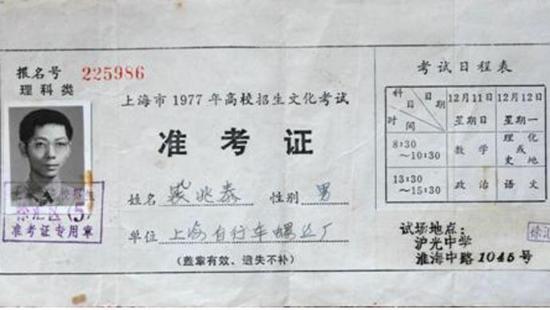 报名号 225986
理科类
上海市1977年高校招生文化考试
准考证
姓名 裘兆泰 性别 男
单位 上海自行车螺丝厂
(盖章有效、遗失不补)
徐汇区(5)
准考证专用章
考试日程表
科目 日期 时间 12月11日 星期日 12月12日 星期一
8:30~10:30 数学 理化或史地
13:30~15:30 政治 语文
试场地点:
沪光中学
淮海中路1045号
徐汇